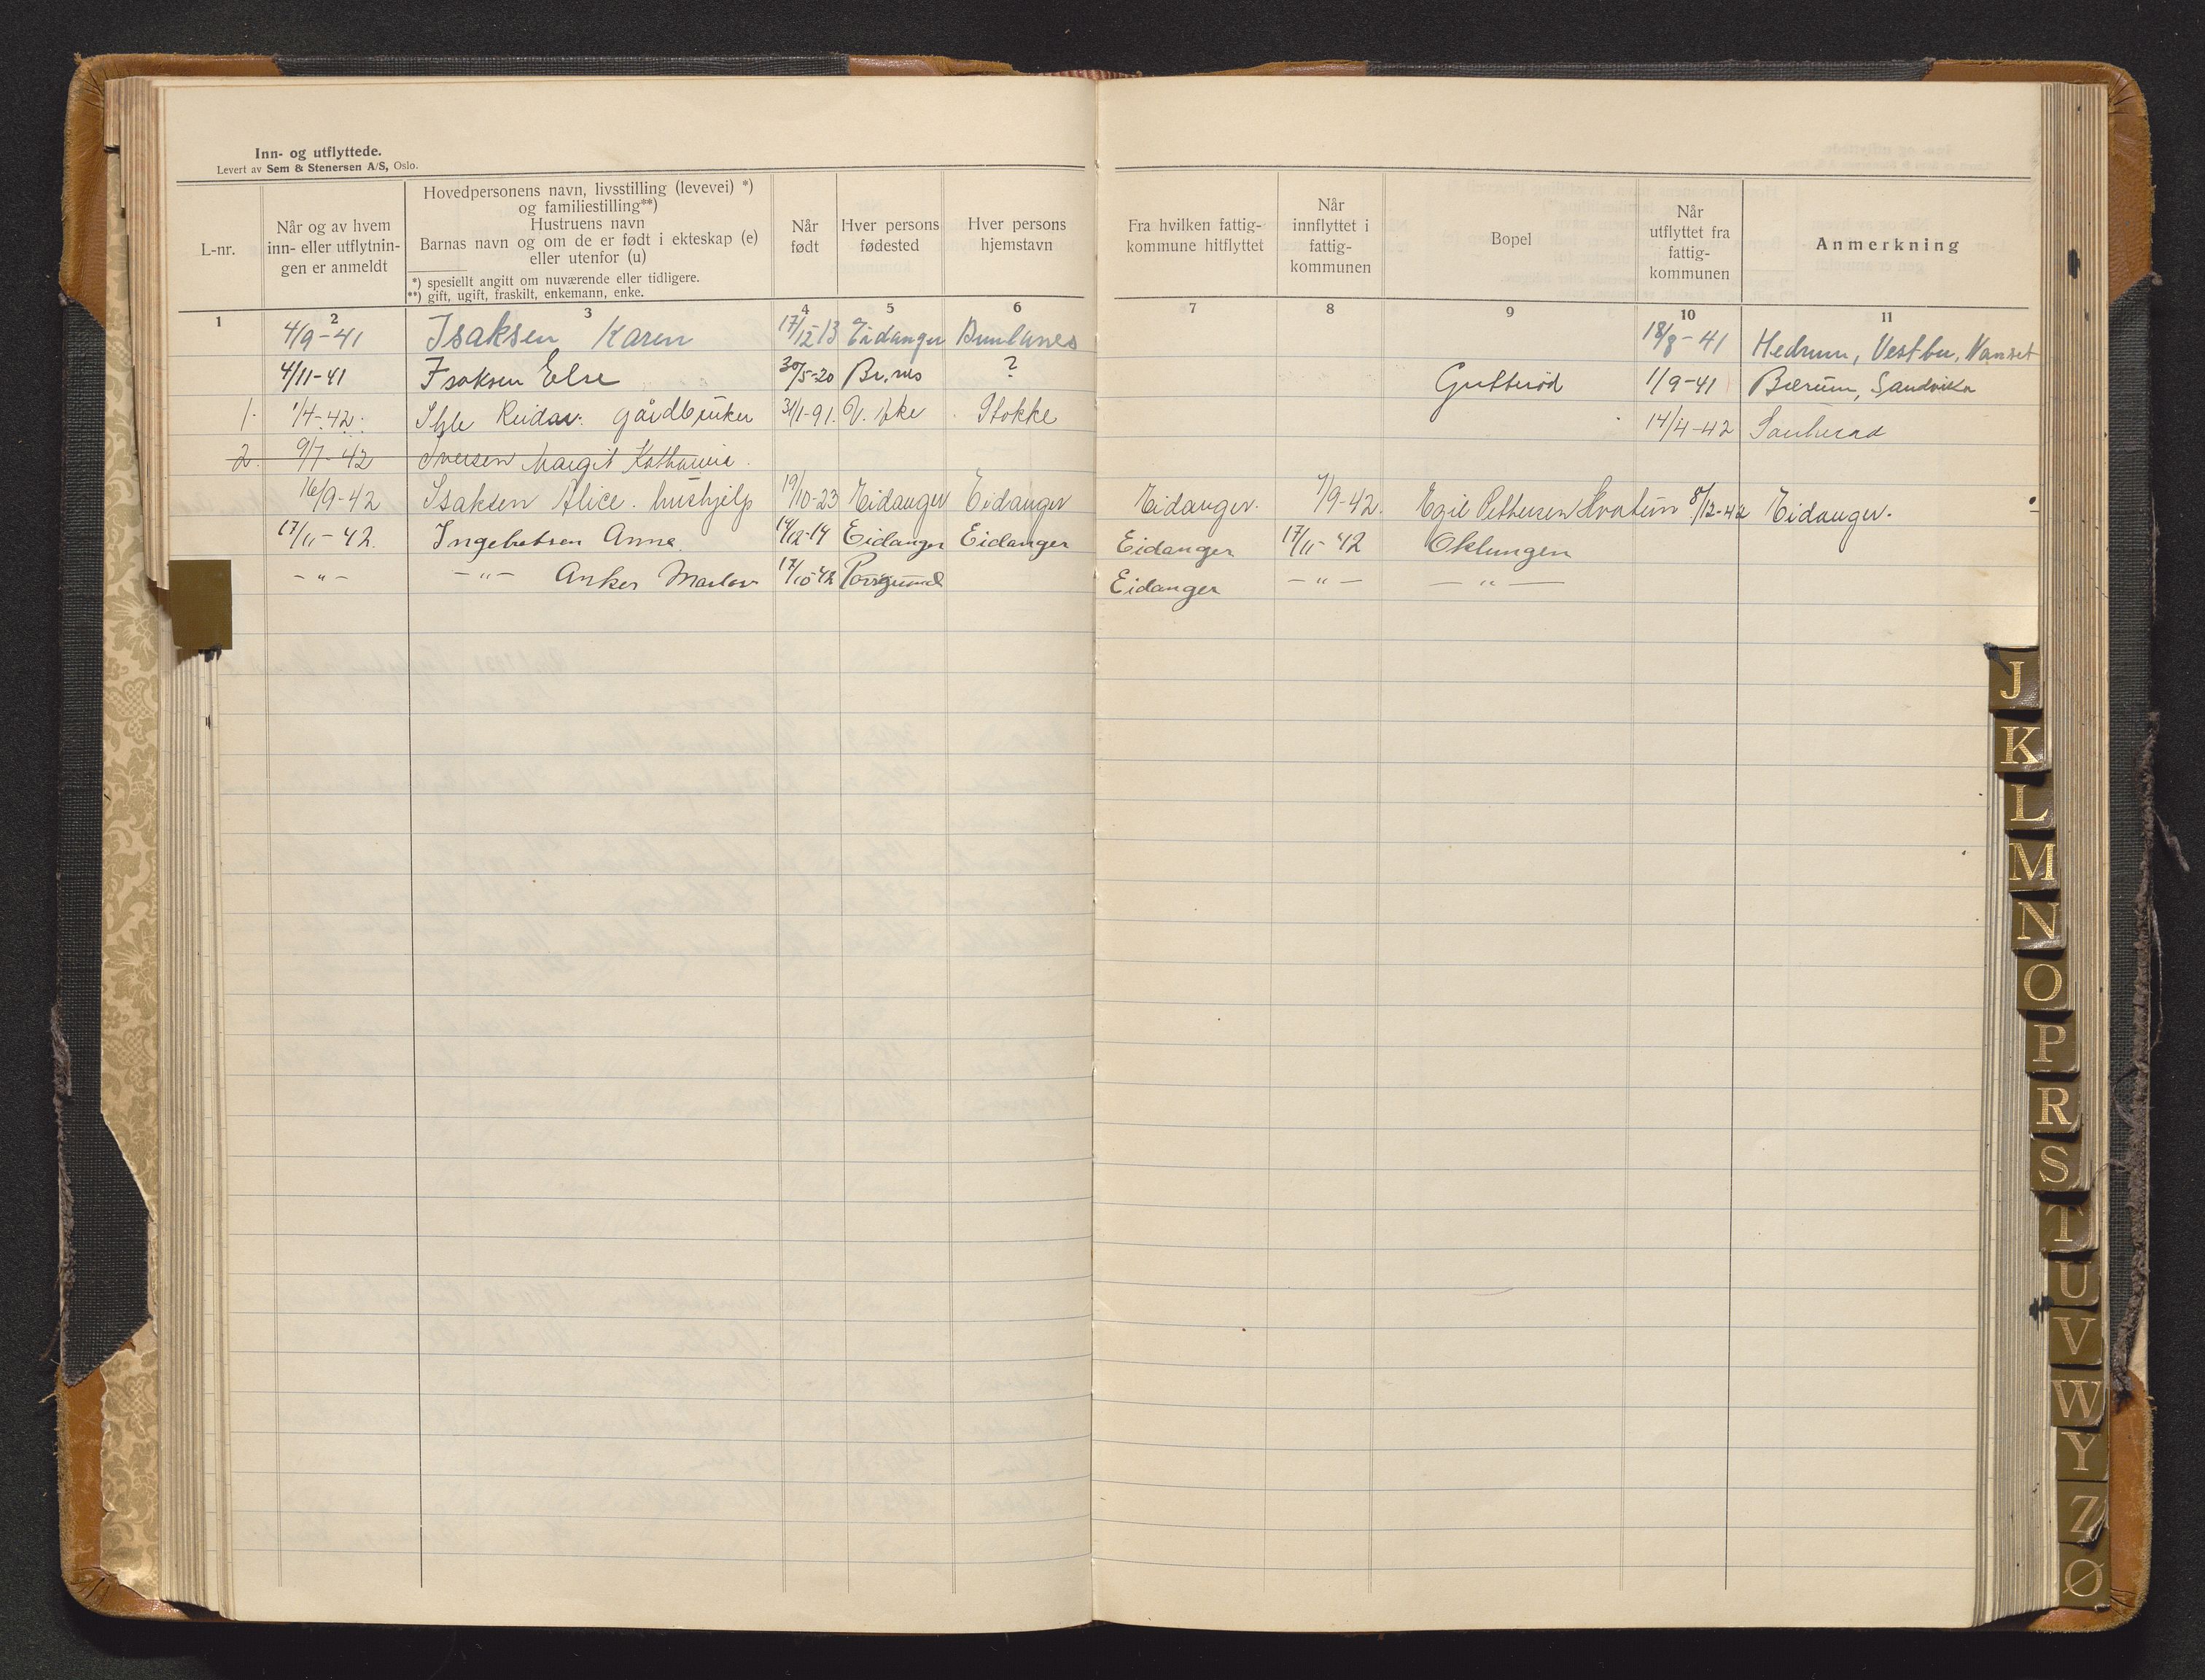 Inn- og utflyttede.
Levert av Sem & Stenersen A/S, Oslo.
L-nr.
Når og av hvem
inn- eller utflytnin-
gen er anmeldt
Hovedpersonens navn, livsstilling (levevei) *)
og familiestilling**)
Hustruens navn
Barnas navn og om de er født i ekteskap (e)
eller utenfor (u)
*) spesiellt angitt om nuværende eller tidligere.
**) gift, ugift, fraskilt, enkemann, enke.
Når
født
Hver persons
fødested
Hver persons
hjemstavn
Fra hvilken fattig-
kommune hitflyttet
Når
innflyttet i
fattig-
kommunen
Bopel
Når
utflyttet fra
fattig-
kommunen
Anmerkning
1 2 3 4 5 6 7 8 9 10 11
4/9-41 Isaksen Karen 17/12 13 Eidanger Brunlanes 18/8-41 Hedrum, Vestbu,
4/11-41 Isaksen Else 30/5-20 Br.nes ? 1/9-41 Bærum, Sandvika
1. 1/4-42. Reidar. gårdbruker 31/1-91. Stokke 14/4-42 Sauherad
2. 9/7-42 Iversen Margit Katharina.
16/9-42 Isaksen Alice. hushjelp 19/10-23 Eidanger Eidanger Eidanger. 1/9-42. Egil Pettersen 8/12-42 Eidanger.
17/11-42. Ingebretsen Anna. 14/12-14 Eidanger Eidanger Eidanger 17/11-42 Oklungen
-"- -"- Anker 17/10 42 Porsgrund Eidanger -"- -"-
J
K
L
M
N
O
P
R
S
T
U
V
W
Y
Z
Ø